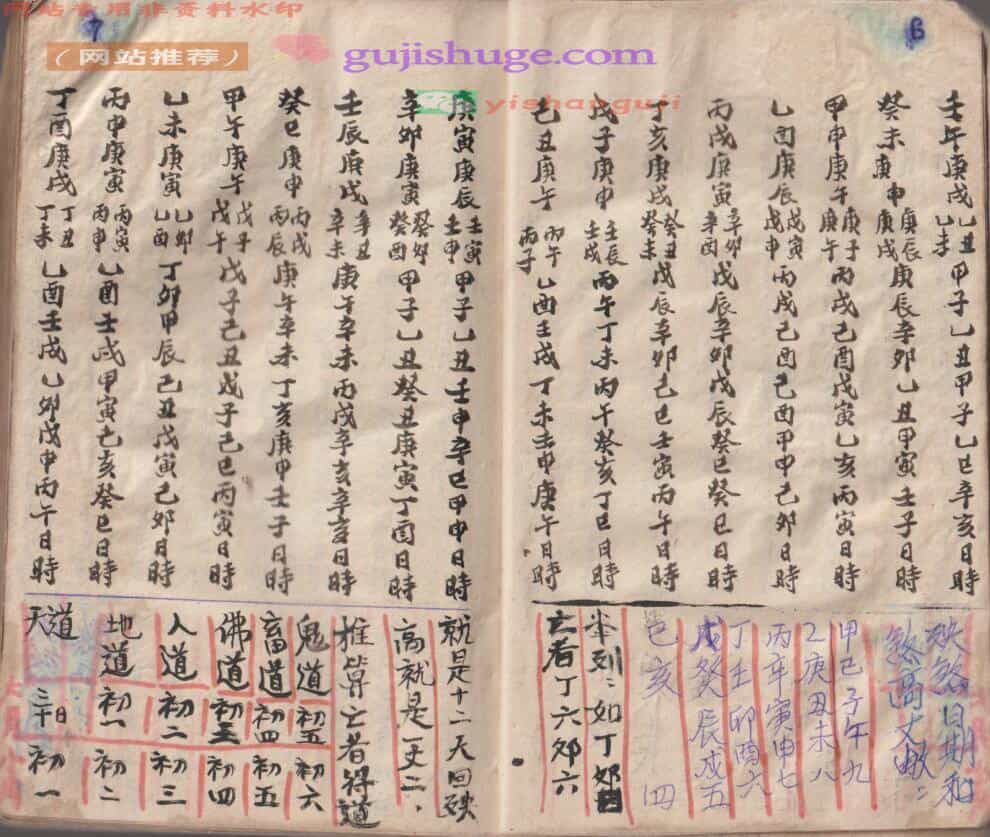 网站专用非资料水印
（网站推荐）
gujishuge.com
yishanguji
6
壬午庚戌乙丑乙未甲子乙丑甲子乙巳辛亥日時
癸未庚申庚辰庚戌庚辰辛卯乙丑甲寅壬子日時
甲申庚午庚子庚午丙戌己酉戊寅乙亥丙寅日時
乙酉庚辰戊寅戊申丙戌己酉己酉甲申己卯日時
丙戌庚寅辛卯辛酉戊辰辛卯戊辰癸巳癸巳日時
丁亥庚戌癸丑癸未戊辰辛卯己巳壬寅丙午日時
戊子庚申壬辰壬戌丙午丁未丙午癸亥丁巳日時
己丑庚午丙午丙子乙酉壬戌丁未壬申庚午日時
殃煞日期和
煞高丈
甲己子午九
乙庚丑未八
丙辛寅申七
丁壬卯酉六
戊癸辰戌五
巳亥四
举列：如丁卯日
亡者丁六卯六
7
庚寅庚辰壬寅壬申甲子乙丑壬申辛巳甲申日時
辛卯庚寅癸卯癸酉甲子乙丑癸丑庚寅丁酉日時
壬辰庚戌辛丑辛未庚午辛未丙戌辛亥辛亥日時
癸巳庚申丙戌丙辰庚午辛未丁亥庚申壬子日時
甲午庚午戊子戊午戊子己丑戊子己巳丙寅日時
乙未庚寅乙卯乙酉丁卯甲辰己丑戊寅己卯日時
丙申庚寅丙寅丙申乙酉壬戌甲寅己亥癸巳日時
丁酉庚戌丁丑丁未乙酉壬戌乙卯戊申丙午日時
就是十二天回殃
高就是一丈二，
推算亡者得道
鬼道初五初六
畜道初四初五
佛道初三初四
人道初二初三
地道初一初二
天道三十日初一